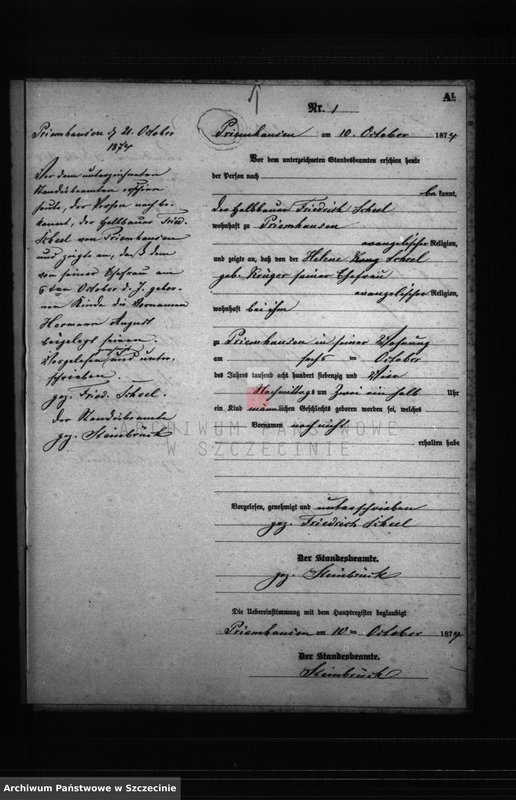 A¹.
Nr. 1
Priemhausen d 21. October
1874
Vor dem unterzeichneten
Standesbeamten erschien
heute, der Person nach be-
kannt, der Halbbauer Fried.
Scheel von Priemhausen
und zeigte an, daß dem
von seiner Ehefrau am
6ten October d. J. gebor-
nen Kinde die Vornamen
Hermann August
beigelegt seien.
Vorgelesen, genehmigt und unter-
schrieben.
gez. Fried. Scheel.
Der Standesbeamte
gez. Steinbrück
Priemhausen am 10. October 1874
Vor dem unterzeichneten Standesbeamten erschien heute
der Person nach
bekannt,
der Halbbauer Friedrich Scheel
wohnhaft zu Priemhausen
evangelischer Religion,
und zeigte an, daß von der Helene Scheel
geb. Krüger seiner Ehefrau
evangelischer Religion,
wohnhaft bei ihm
zu Priemhausen in seiner Wohnung
am sechs ten October
des Jahres tausend acht hundert siebenzig und vier
Nachmittags um Zwei ein halb Uhr
ein Kind männlichen Geschlechts geboren worden sei, welches
Vornamen noch nicht
erhalten habe
Vorgelesen, genehmigt und unterschrieben
gez. Friedrich Scheel
Der Standesbeamte.
gez. Steinbrück
Die Uebereinstimmung mit dem Hauptregister beglaubigt
Priemhausen am 10 ten October 1874
Der Standesbeamte.
Steinbrück
ARCHIWUM PAŃSTWOWE
W SZCZECINIE
Archiwum Państwowe w Szczecinie